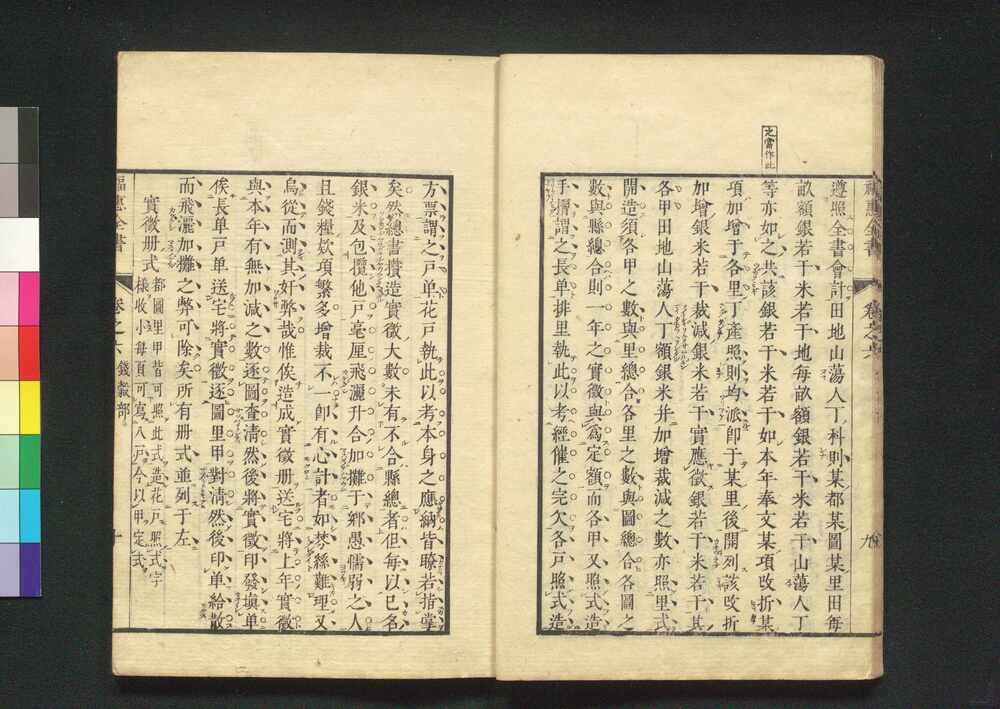 之當作此
福惠全書
卷之六
九
遵照全書會計田地山蕩人丁科則某都某圖某里田每
畝額銀若干米若干地每畝額銀若干米若干山蕩人丁
等亦如之共該銀若干米若干如本年奉文某項改折某
項加增于各里丁產照則均派卽于某里後開列該改折
加增銀米若干裁減銀米若干實應徵銀若干米若干其
各甲田地山蕩人丁額銀米并加增裁減之數亦照里式
開造須各甲之數與里總合各里之數與圖總合各圖之
數與縣總合則一年之實徵與爲定額而各甲又照式造
手摺謂之長单排里執此以考經催之完欠各戸照式造
方票謂之戸单花戸執此以考本身之應納皆瞭若指掌
矣然總書攢造實徵大數未有不合縣總者但每以已名
銀米及包攬他戸毫厘飛灑升合加攤于鄉愚懦弱之人
且錢糧欵項繁多增裁不一卽有心計者如棼絲難理又
烏從而測其奸弊哉惟俟造成實徵册送宅將上年實徵
與本年有無加減之數逐圖查清然後將實徵印發塡单
俟長单戸单送宅將實徵逐圖里甲對清然後印单給散
而飛灑加攤之弊可除矣所有册式並列于左
實徵册式
都圖里甲皆可照此式造花戸照式字
樣收小每頁可寫八戸今以甲定式
福惠全書
卷之六
錢穀部
十